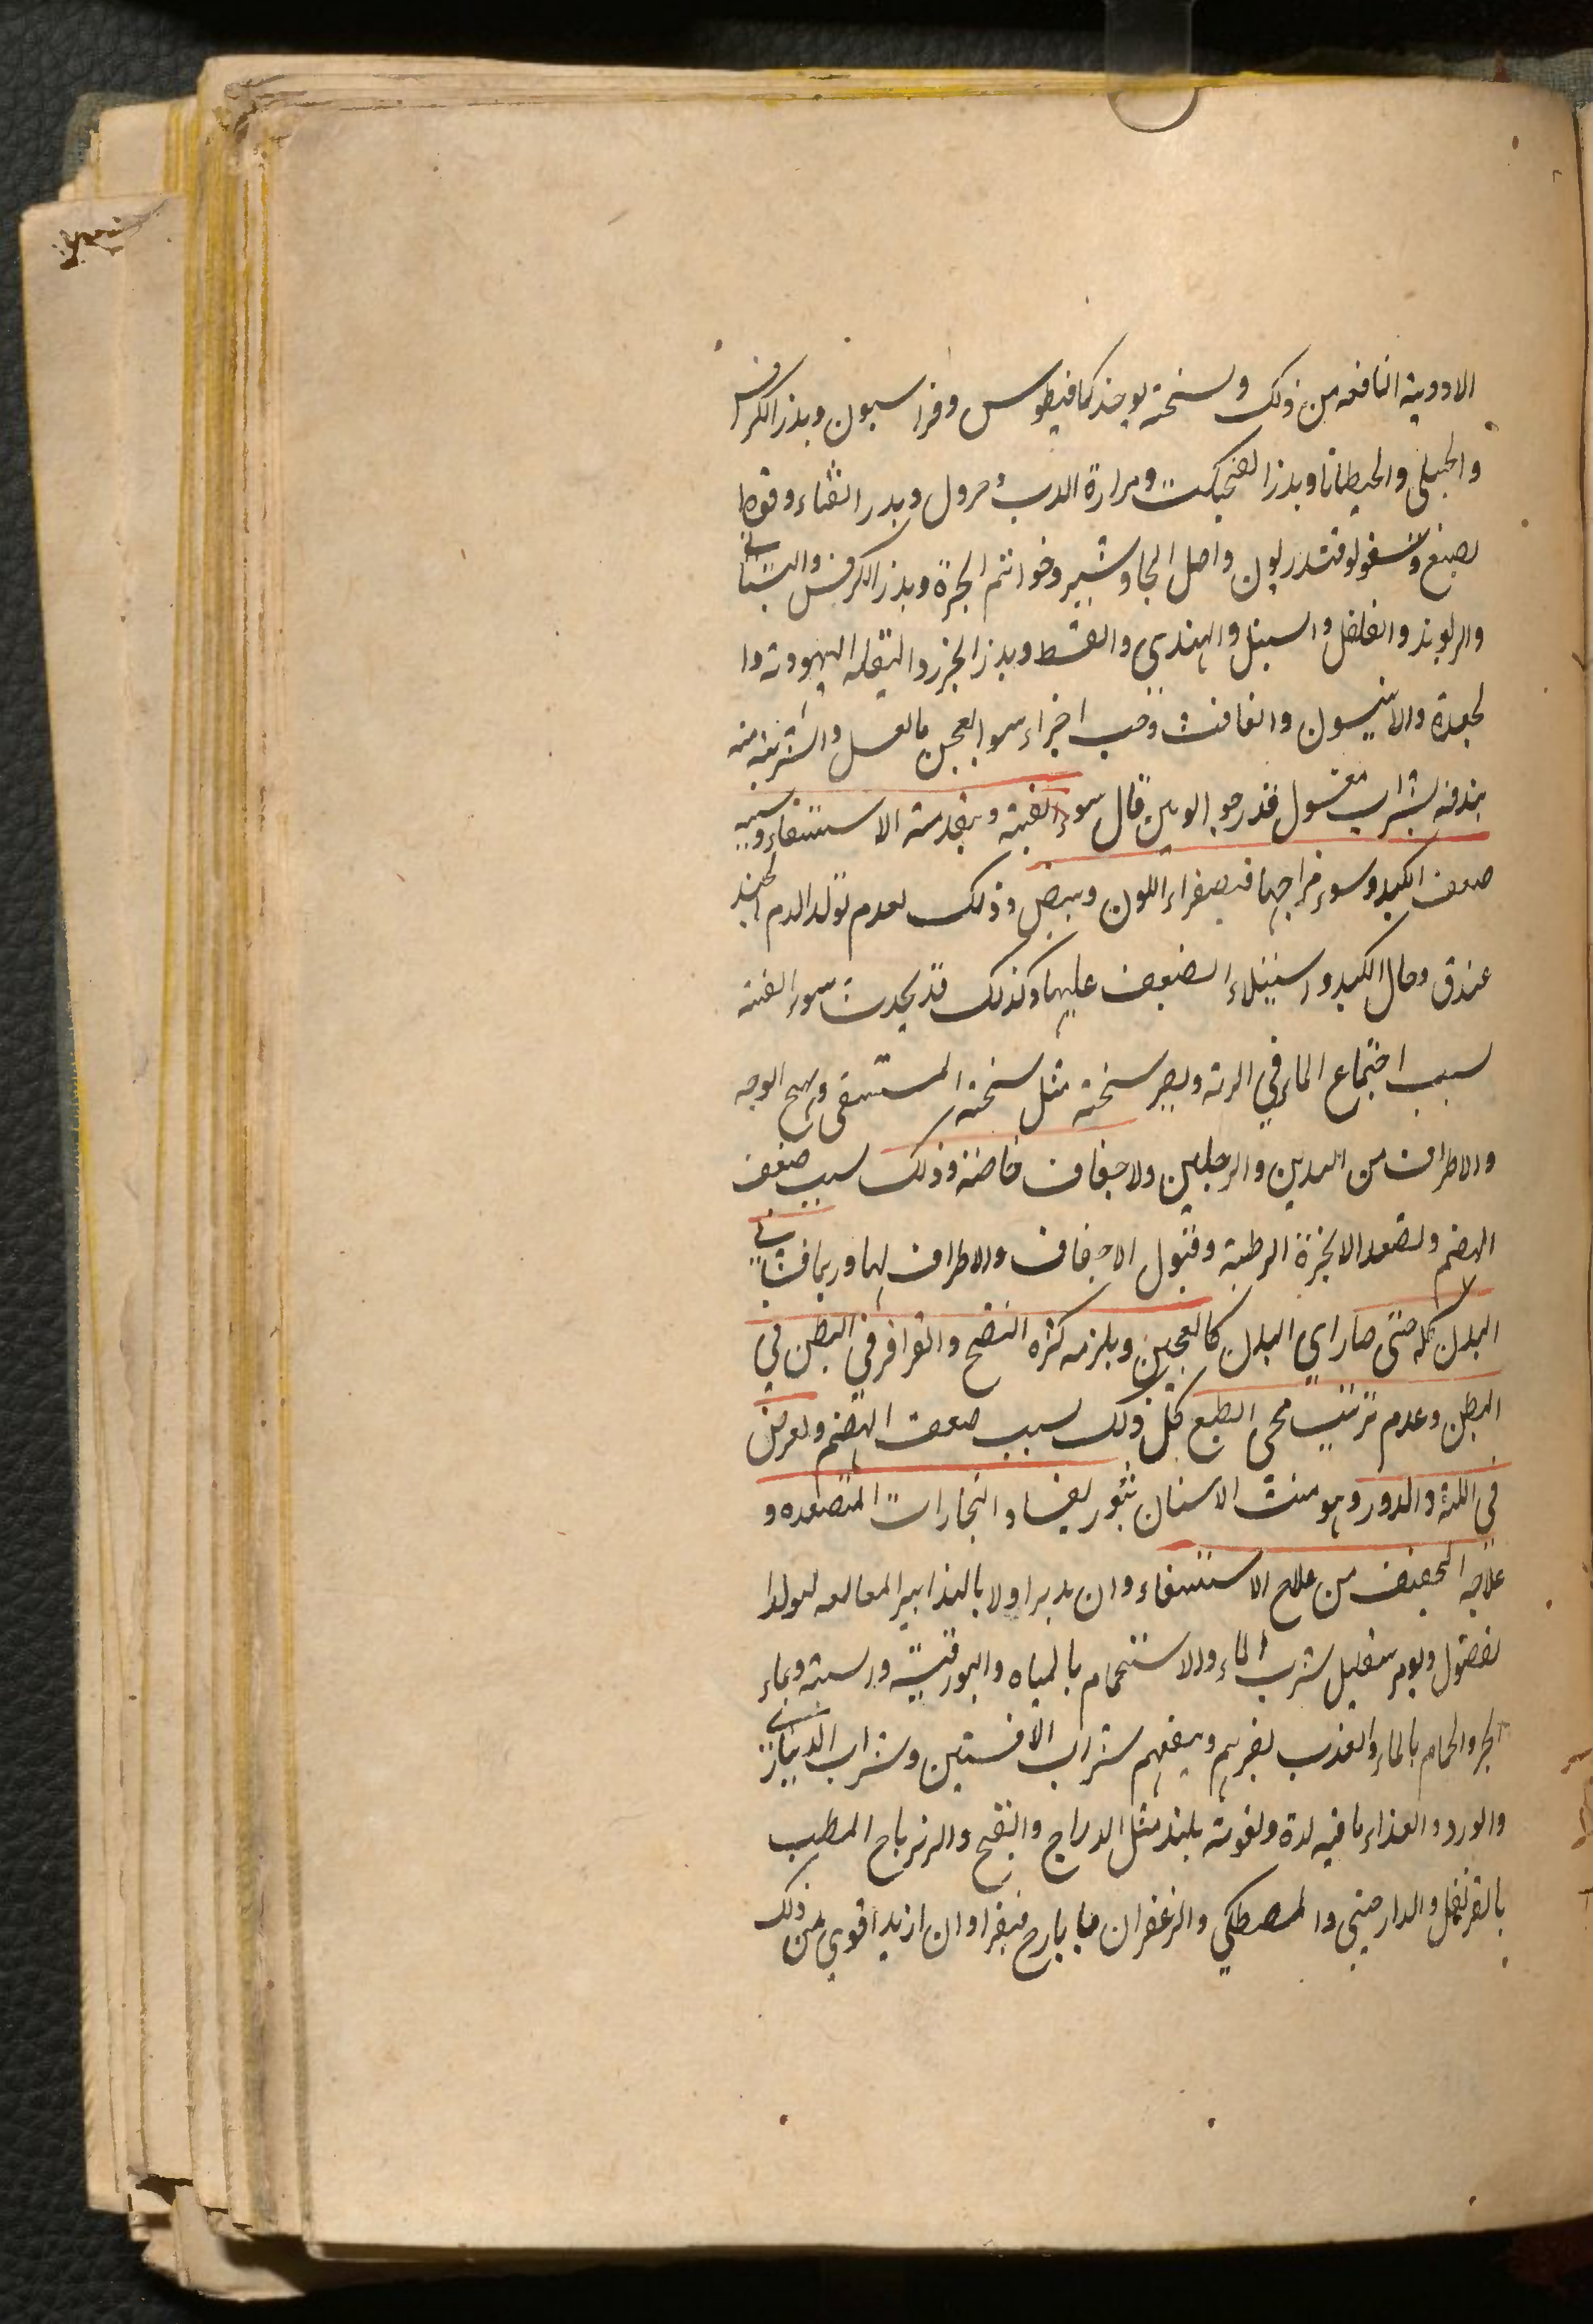 الادوية النافعه من ذلك ونسخته يوخذ كمافيطوس وفراسيون وبذر الكرفس
والجبلى والجنطيانا وبذر الفنجنكشت ومرارة الدب وخردل وبذر القثاء
واصل الجاوشير وخواتم البحرة وبذر الكرفس والبستانى
والريوند والفلفل والسنبل والهندى والقسط وبذر الجزر والبقله اليهودية وا
لجعدة والانيسون والغافت وحب اجزاء سوا يعجن بالعسل والشربة منه
بندقه بشراب معسول قدر جوالوين قال سوء القنية ويقدمة الاستسقاء وسببه
ضعف الكبد وسوء مزاجها فيصفر اللون ويبيض وذلك لعدم تولد الدم الجيد
عند وحال الكبد واستيلاء الضعف عليها وكذلك قد يحدث سوء القنية
بسبب اجتماع الماء في الرئة ويصير سخنته مثل سخنة المستسقى ويهيج الوجه
والاطراف من اليدين والرجلين والاجفان خاصة وذلك بسبب ضعف
الهضم وتصعد الابخرة الرطبة وقبول الاجفان والاطراف لها وربما فشا في
البدن كله حتى صار اي البدن كالعجين ويلزمه كثره النفخ والقراقر في البطن في
البطن وعدم ترتيب مجى الطبع كل ذلك بسبب ضعف الهضم ويعرض
في اللثة والدور وهو منبت الاسنان بثور لفساد البخارات المتصعده و
علاجه الخفيف من علاج الاستسقاء وان يدبر اولا بالتدابير المانعه لتولد ا
لفضول ويومر بتقليل شرب الماء والاستحمام بالمياه والبورقية وبماء
البحر والحمام بالماء العذب يضرهم وينفعهم شراب الافسنتين وشراب الدينارى
والورد والغذاء ما فيه لذة وتقوية مثل الدراج والقبج والزيرباج المطيب
بالقرنفل والدارصينى والمصطكي والزعفران يا يارج فيقرا وان ازيد اقوى من ذلك